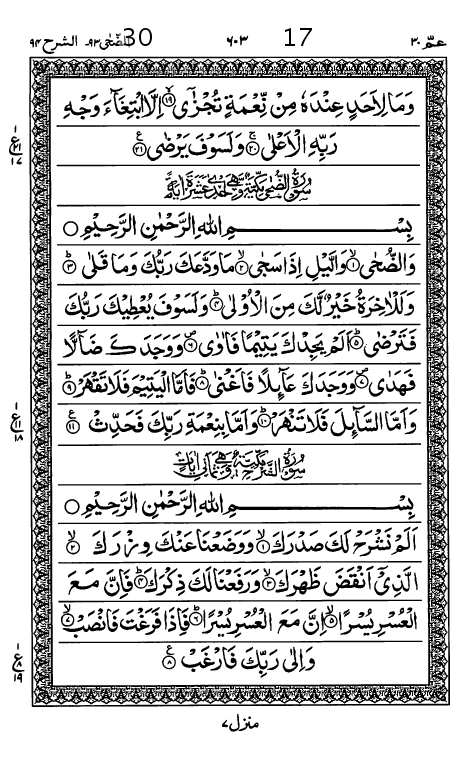 عمّ ٣٠ 17 ٦٠٣ 30 الضّحٰى ٩٣ـ الشرح ٩٤
وَمَا لِاَحَدٍ عِنْدَهٗ مِنْ نِّعْمَةٍ تُجْزٰٓى ۙ۝۱۹ اِلَّا ابْتِغَآءَ وَجْهِ
رَبِّهِ الْاَعْلٰى ۚ۝۲۰ وَلَسَوْفَ يَرْضٰى ࣖ۝۲۱
۱ ع ۲۱ ۱۷
سُوْرَةُ الضُّحٰى مَكِّيَّةٌ وَّهِىَ اِحْدٰى عَشَرَةَ اٰيَةً
بِسْمِ اللهِ الرَّحْمٰنِ الرَّحِيْمِ ۝
وَالضُّحٰى ۙ۝۱ وَالَّيْلِ اِذَا سَجٰى ۙ۝۲ مَا وَدَّعَكَ رَبُّكَ وَمَا قَلٰى ؕ۝۳
وَلَلْاٰخِرَةُ خَيْرٌ لَّكَ مِنَ الْاُوْلٰى ؕ۝۴ وَلَسَوْفَ يُعْطِيْكَ رَبُّكَ
فَتَرْضٰى ؕ۝۵ اَلَمْ يَجِدْكَ يَتِيْمًا فَاٰوٰى ۪۝۶ وَوَجَدَكَ ضَآلًّا
فَهَدٰى ۪۝۷ وَوَجَدَكَ عَآئِلًا فَاَغْنٰى ؕ۝۸ فَاَمَّا الْيَتِيْمَ فَلَا تَقْهَرْ ؕ۝۹
وَاَمَّا السَّآئِلَ فَلَا تَنْهَرْ ؕ۝۱۰ وَاَمَّا بِنِعْمَةِ رَبِّكَ فَحَدِّثْ ࣖ۝۱۱
۱ ع ۱۱ ۱۸
بِسْمِ اللهِ الرَّحْمٰنِ الرَّحِيْمِ ۝
اَلَمْ نَشْرَحْ لَكَ صَدْرَكَ ۙ۝۱ وَوَضَعْنَا عَنْكَ وِزْرَكَ ۙ۝۲
الَّذِىْٓ اَنْقَضَ ظَهْرَكَ ۙ۝۳ وَرَفَعْنَا لَكَ ذِكْرَكَ ؕ۝۴ فَاِنَّ مَعَ
الْعُسْرِ يُسْرًا ۙ۝۵ اِنَّ مَعَ الْعُسْرِ يُسْرًا ؕ۝۶ فَاِذَا فَرَغْتَ فَانْصَبْ ۙ۝۷
وَاِلٰى رَبِّكَ فَارْغَبْ ࣖ۝۸
۱ ع ۸ ۱۹
منزل ۷